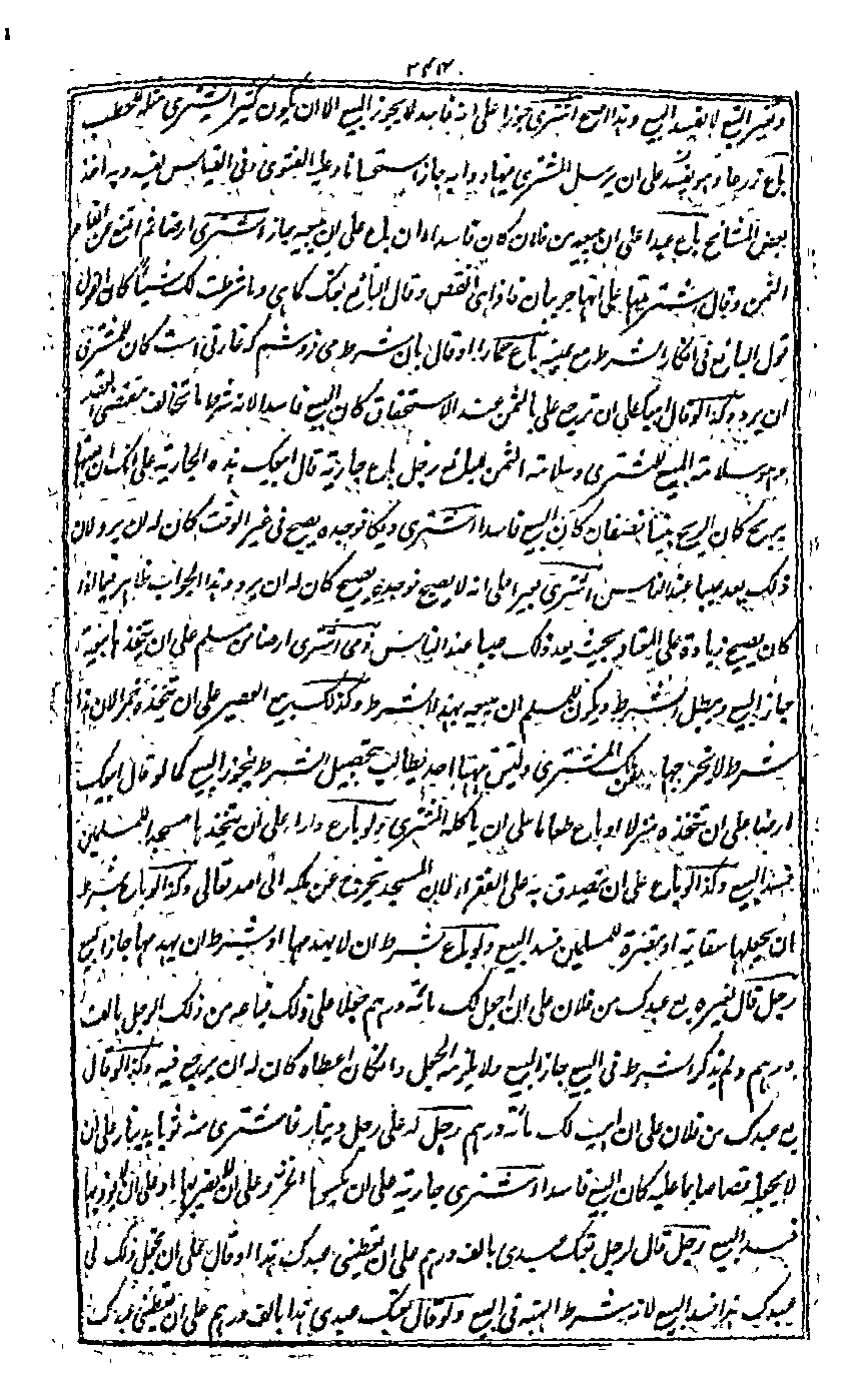 1
وتفسير البيع لا يفسد البيع وهذا البيع اشترى جوزا على انه فاسد لا يجوز البيع الا ان يكون كثير المشترى مثله للحطب
باع زرعا وهو بقل على ان يرسل المشترى فيها دوابه جاز استحسانا وعليه الفتوى وفى القياس يفسد وبه اخذ
بعض المشائخ باع عبدا على ان يبيعه من فلان كان فاسدا وان باع على ان يبيعه جاز اشترى ارضا ثم امتنع من
الثمن وقال اشتريتها على انها جريبان فاذا هى انقص وقال البائع بعتك كما هى وما شرطت لك شيئا كان القول
قول البائع فى انكار الشرط مع يمينه باع حمارا وقال بان شرط مى فروشم كه غارتى است كان للمشترى
ان يرده وكذا لو قال ابيعك على ان ترجع على بالثمن عند الاستحقاق كان البيع فاسدا لانه شرط ما يخالف مقتضى العقد
وهو سلامة المبيع للمشترى وسلامة الثمن للبائع رجل باع جارية قال ابيعك هذه الجارية على انك ان بعتها
بربح كان الربح بيننا نصفان كان البيع فاسدا اشترى ديكا فوجده يصيح فى غير الوقت كان له ان يرد لان
ذلك يعد عيبا عند الناس اشترى بعيرا على انه لا يصيح فوجده يصيح كان له ان يرد وهذا الجواب ظاهر فيما اذا
كان يصيح زيادة على المعتاد بحيث يعد ذلك عيبا عند الناس ذمى اشترى ارضا من مسلم على ان يتخذها بيعة
جاز البيع ويبطل الشرط ويكون للمسلم ان يبيعه بهذا الشرط وكذلك بيع العصير على ان يتخذه خمرا لان هذا
شرط لا يخرجها من ملك المشترى وليس ههنا احد يطالب بتحصيل الشرط فيجوز البيع كما لو قال ابيعك
ارضا على ان تتخذه منزلا او باع طعاما على ان ياكله المشترى ولو باع دارا على ان يتخذها مسجدا للمسلمين
فسد البيع وكذا لو باع على ان يتصدق به على الفقراء لان المسجد يخرج عن ملكه الى الله تعالى وكذا لو باع بشرط
ان يجعلها سقاية او مقبرة للمسلمين فسد البيع ولو باع بشرط ان لا يهدمها او بشرط ان يهدمها جاز البيع
رجل قال لغيره بع عبدك من فلان على ان اجعل لك مائة درهم جعلا على ذلك فباعه من ذلك الرجل بالف
درهم ولم يذكر الشرط فى البيع جاز البيع ولا يلزمه الجعل وان كان اعطاه كان له ان يرجع فيه وكذا لو قال
بع عبدك من فلان على ان اهب لك مائة درهم رجل له على رجل دينار فاشترى منه ثوبا بدينار على ان
لا يجعله قصاصا بما عليه كان البيع فاسدا اشترى جارية على ان يكسوها الخز وعلى ان لا يضربها او على ان لا يؤذيها
فسد البيع رجل قال لرجل بعتك عبدى بالف درهم على ان تعطينى عبدك هذا او قال على ان تجعل ذلك لى
عبدك هذا فسد البيع لانه شرط الهبة فى البيع ولو قال بعتك عبدى هذا بالف درهم على ان تعطينى عبدك